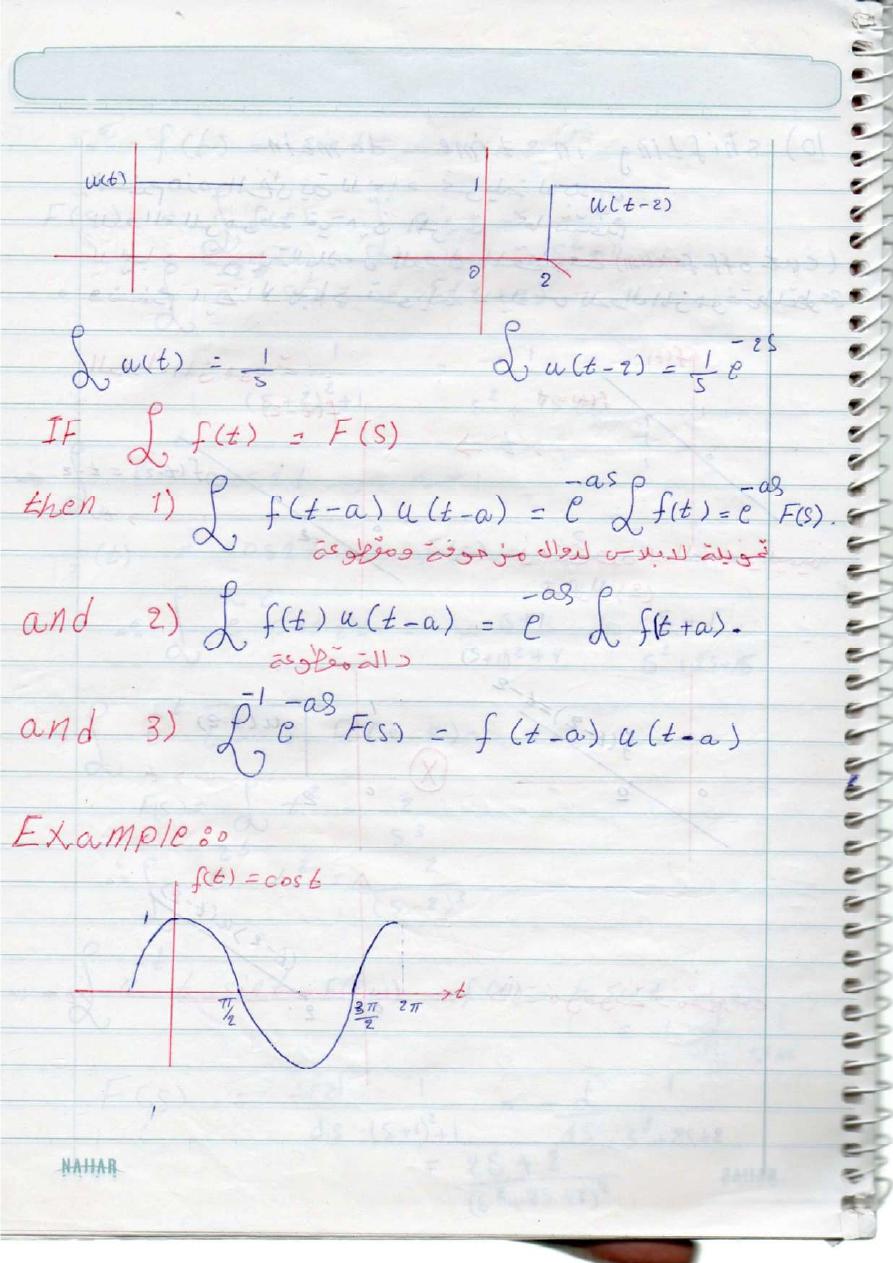 u(t)
1
u(t-2)
0
2
ℒ u(t) = 1/s
ℒ u(t-2) = 1/s e^{-2s}
IF ℒ f(t) = F(s)
then 1) ℒ f(t-a) u(t-a) = e^{-as} ℒ f(t) = e^{-as} F(s).
تحويلة لابلاس لدوال مزحوفة ومقطوعة
and 2) ℒ f(t) u(t-a) = e^{-as} ℒ f(t+a).
دالة مقطوعة
and 3) ℒ^{-1} e^{-as} F(s) = f(t-a) u(t-a)
Example:
f(t) = cost
1
t
π/2
3π/2
2π
NAHAR